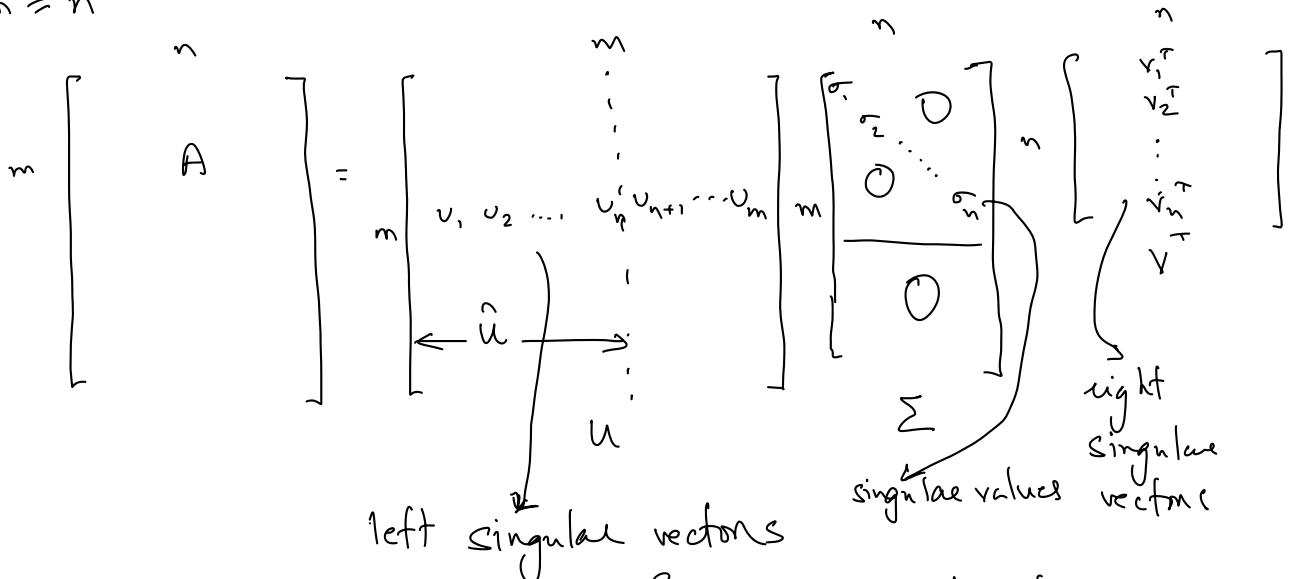 n
m
n
n
m A = m u₁ u₂ .... uₙ uₙ₊₁ ... uₘ m σ₁ σ₂ ..... σₙ 0 0 0 n v₁ᵀ v₂ᵀ ⋮ vₙᵀ
û
u
Σ
Vᵀ
right
singular
vectors
singular values
left singular vectors